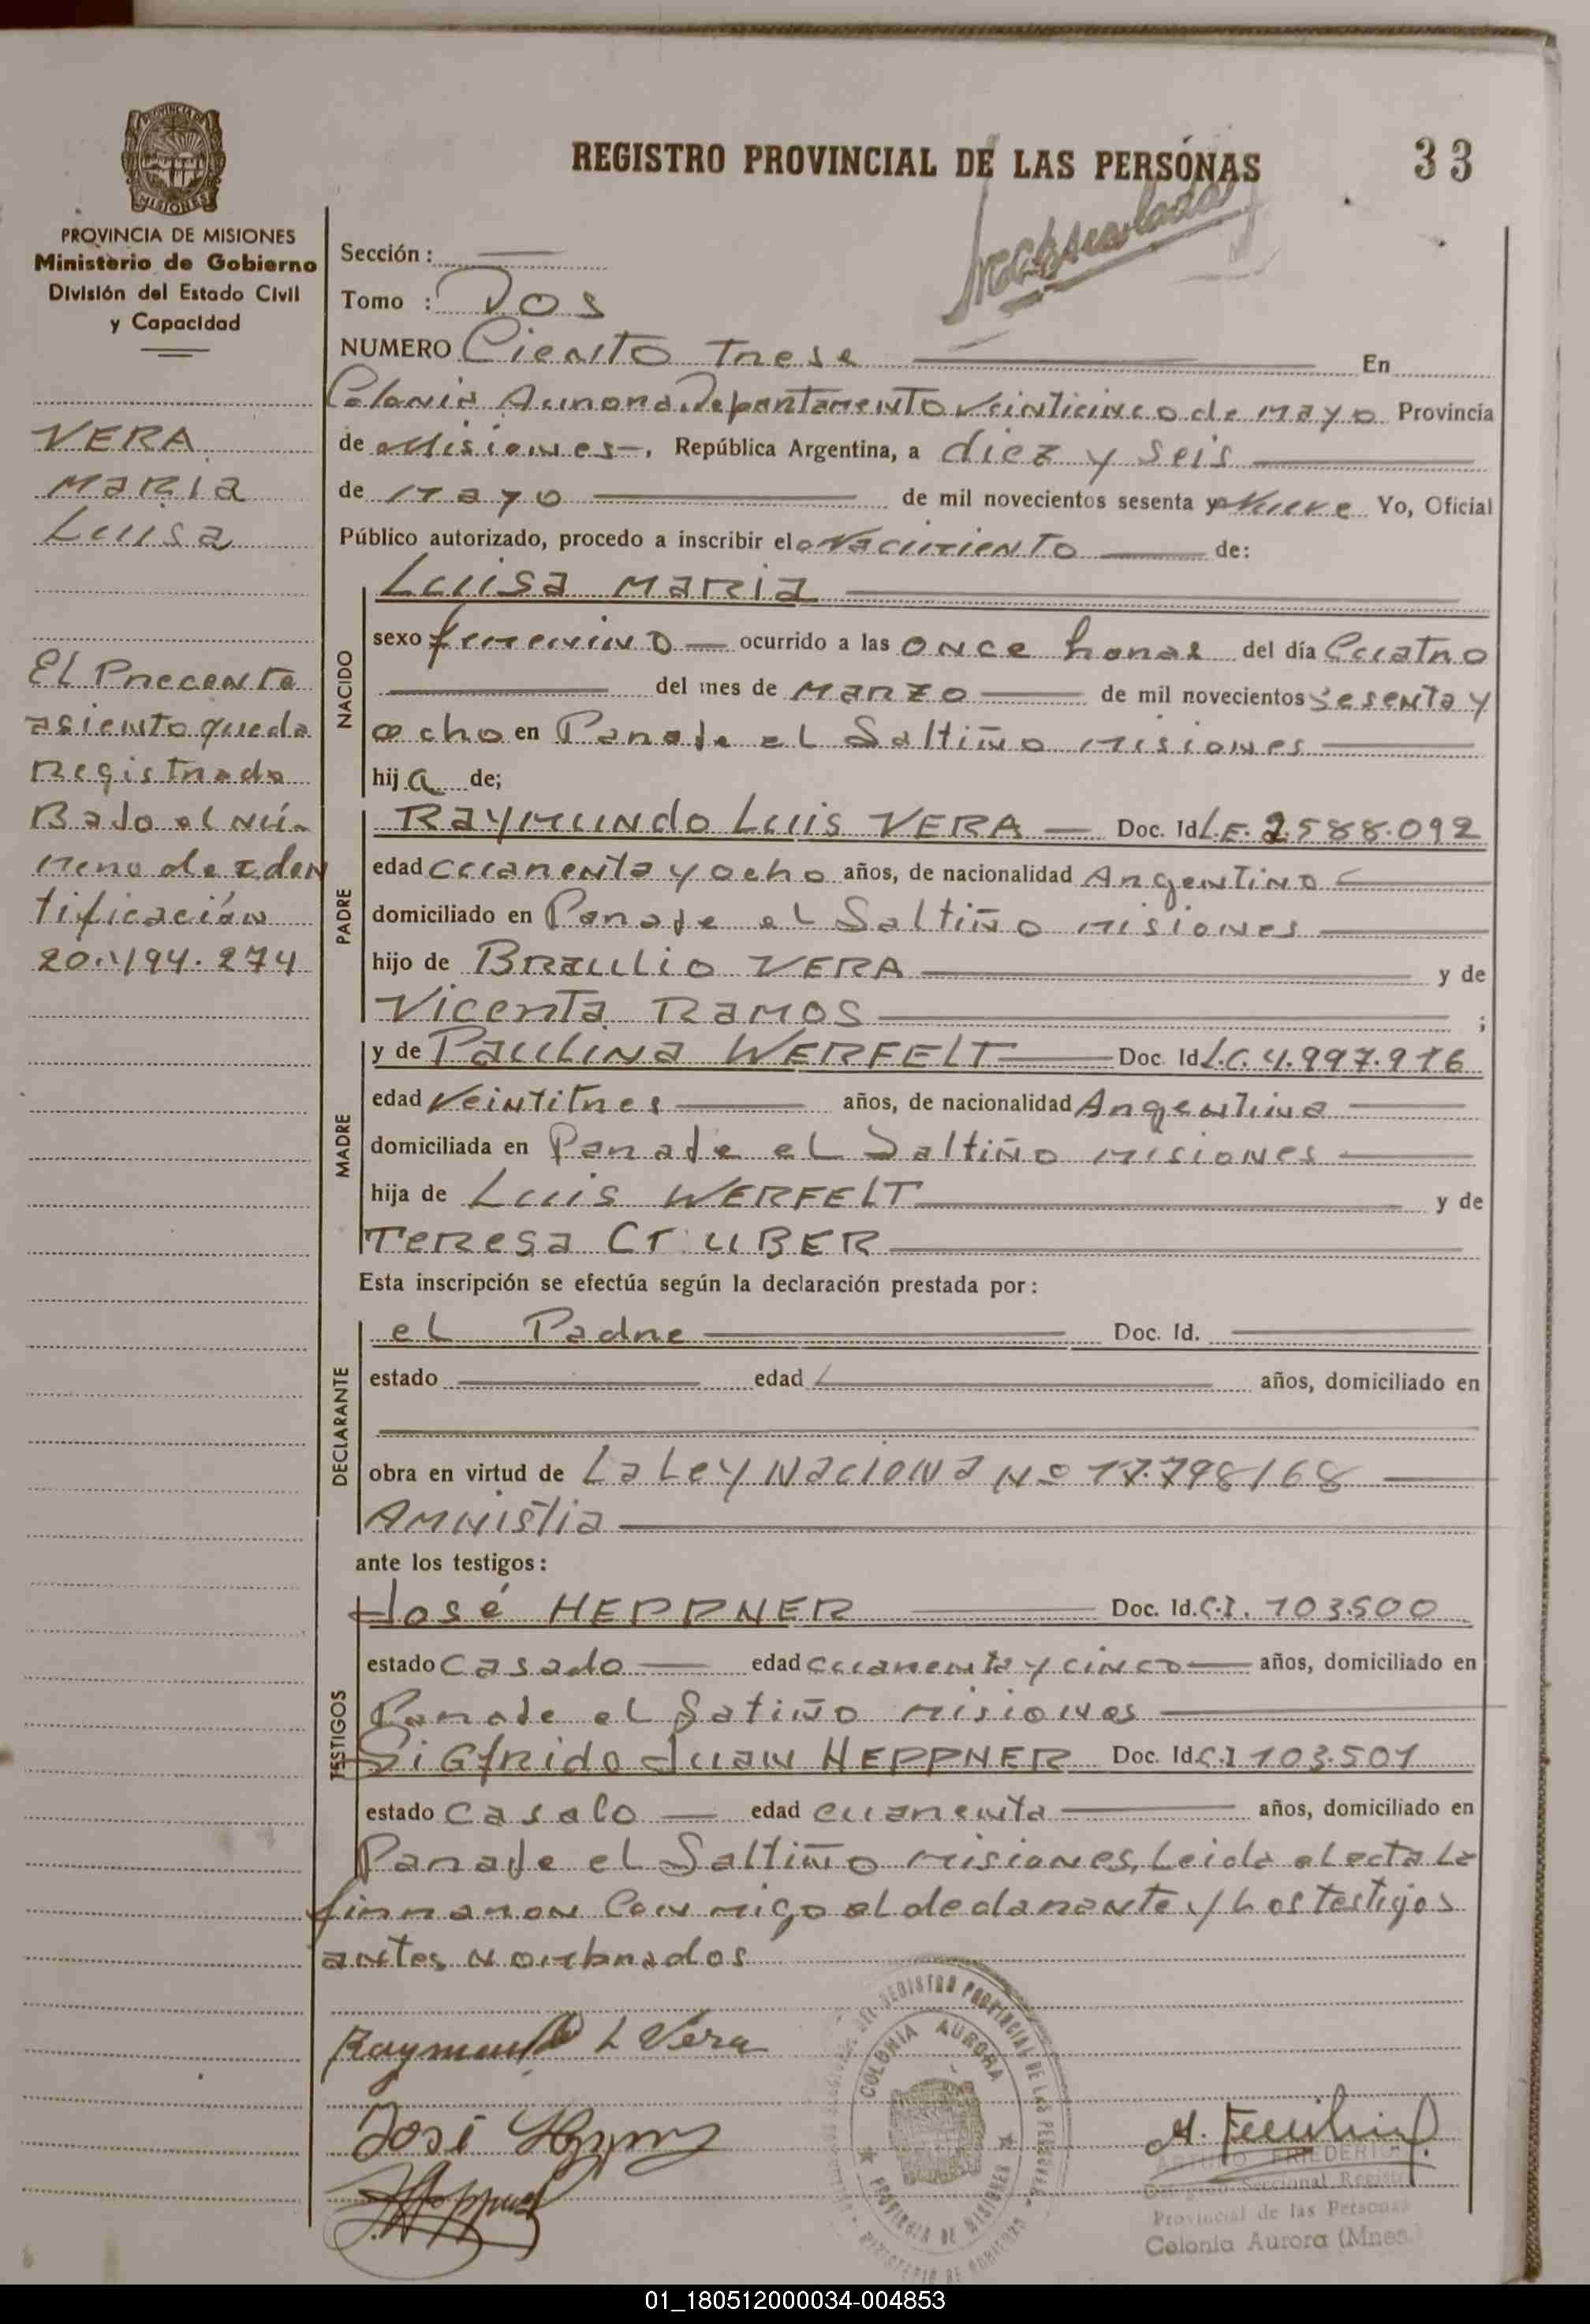 REGISTRO PROVINCIAL DE LAS PERSONAS
33
PROVINCIA DE MISIONES
Ministerio de Gobierno
División del Estado Civil
y Capacidad
VERA
MARIA
Luisa
El Precente
asiento queda
Registrado
Bajo el nú-
mero de iden
tificación
20.194.274
Sección :
Tomo : Dos
NUMERO Ciento Trese En
Colonia Aurora Departamento Veinticinco de Mayo Provincia
de Misiones-, República Argentina, a diez y seis
de Mayo de mil novecientos sesenta y Nueve Yo, Oficial
Público autorizado, procedo a inscribir el Nacimiento de:
NACIDO
Luisa Maria
sexo femenino ocurrido a las once horas del día Cuatro
del mes de Marzo de mil novecientos sesenta y
ocho en Paraje el Saltiño Misiones
hija de;
PADRE
Raymundo Luis VERA Doc. Id L.E. 2.588.092
edad cuarenta y ocho años, de nacionalidad Argentino
domiciliado en Paraje el Saltiño Misiones
hijo de Braulio VERA y de
Vicenta Ramos ;
MADRE
y de Paulina WERFELT Doc. Id L.C. 4.997.916
edad Veintitres años, de nacionalidad Argentina
domiciliada en Paraje el Saltiño Misiones
hija de Luis WERFELT y de
Teresa UBER
Esta inscripción se efectúa según la declaración prestada por :
DECLARANTE
el Padre Doc. Id.
estado edad años, domiciliado en
obra en virtud de La Ley Naciona Nº 17.798/68
Amnistia
ante los testigos :
TESTIGOS
José HEPPNER Doc. Id. C.I. 103.500
estado Casado edad cuarenta y cinco años, domiciliado en
Paraje el Satiño Misiones
Sigfrido Juan HEPPNER Doc. Id C.I 103.501
estado Casado edad cuarenta años, domiciliado en
Paraje el Saltiño Misiones, Leida el acta La
firmaron Con migo el declarante y Los testigos
antes nombrados
Raymundo L Vera
José
COLONIA AURORA
PROVINCIA DE MISIONES
ARTURO FRIEDERICH
Seccional Registro
Provincial de las Personas
Colonia Aurora (Mnes.)
01_180512000034-004853